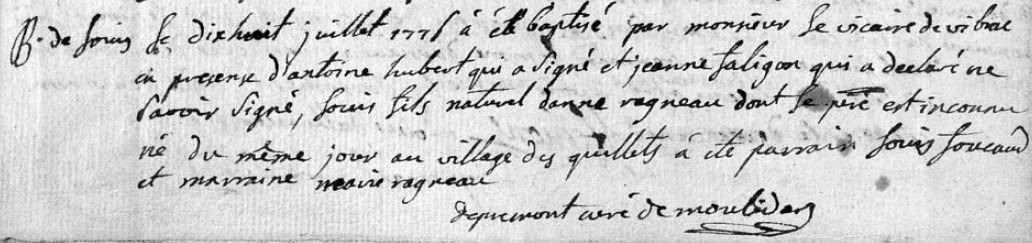 B. de louis le dixhuit juillet 1776 à été baptisé par monsieur le vicaire de vibrac
en presense d'antoine hubert qui a signé et jeanne saligon qui a declaré ne
savoir signé, louis fils naturel danne ragneau dont le père est inconnu
né du même jour au village des quillets à été parrain louis foucaud
et marraine marie ragneau
depremont curé de moulidars